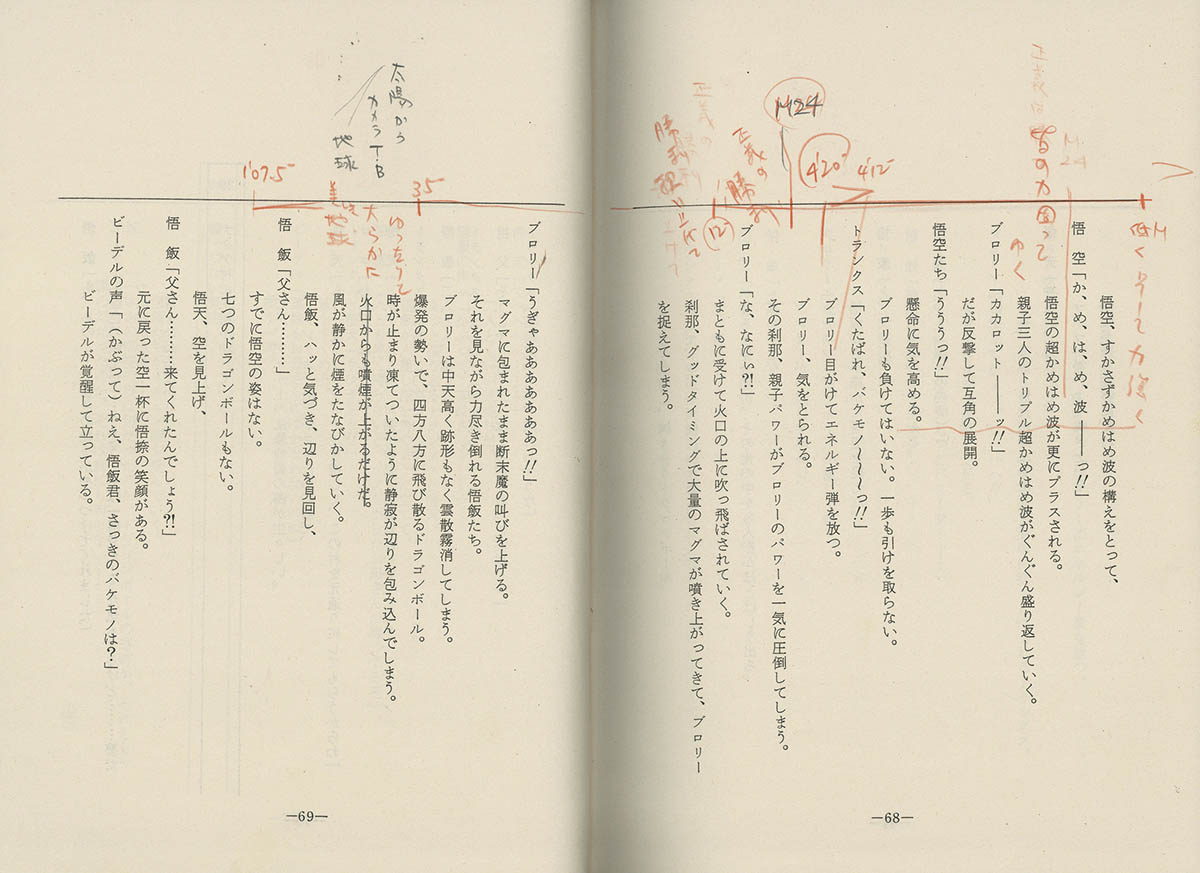 悟空、すかさずかめはめ波の構えをとって、
悟　空「か、め、は、め、波━━っ!!」
悟空の超かめはめ波が更にプラスされる。
親子三人のトリプル超かめはめ波がぐんぐん盛り返していく。
ブロリー「カカロット━━ッ!!」
だが反撃して互角の展開。
悟空たち「うううっ!!」
懸命に気を高める。
ブロリーも負けてはいない。一歩も引けを取らない。
トランクス「くたばれ、バケモノ～～～っ!!」
ブロリー目がけてエネルギー弾を放つ。
ブロリー、気をとられる。
その刹那、親子パワーがブロリーのパワーを一気に圧倒してしまう。
ブロリー「な、なにぃ?!」
まともに受けて火口の上に吹っ飛ばされていく。
刹那、グッドタイミングで大量のマグマが噴き上がってきて、ブロリー
を捉えてしまう。
M
24
皆の力
ゆく
4'12"
4'20"
M24
正義の
勝利
12"
—68—
ブロリー「うぎゃあああああああっ!!」
マグマに包まれたまま断末魔の叫びを上げる。
それを見ながら力尽き倒れる悟飯たち。
ブロリーは中天高く跡形もなく雲散霧消してしまう。
爆発の勢いで、四方八方に飛び散るドラゴンボール。
時が止まり凍てついたように静寂が辺りを包み込んでしまう。
火口からも噴煙が上がるだけだ。
風が静かに煙をたなびかしていく。
悟飯、ハッと気づき、辺りを見回し、
悟　飯「父さん…………」
すでに悟空の姿はない。
七つのドラゴンボールもない。
悟天、空を見上げ、
悟　飯「父さん…………来てくれたんでしょう?!」
元に戻った空一杯に悟捺の笑顔がある。
ビーデルの声「（かぶって）ねえ、悟飯君、さっきのバケモノは？」
ビーデルが覚醒して立っている。
太陽から
カメラT・B
地球
35
ゆったりと
大らかに
地球
1'07.5"
—69—